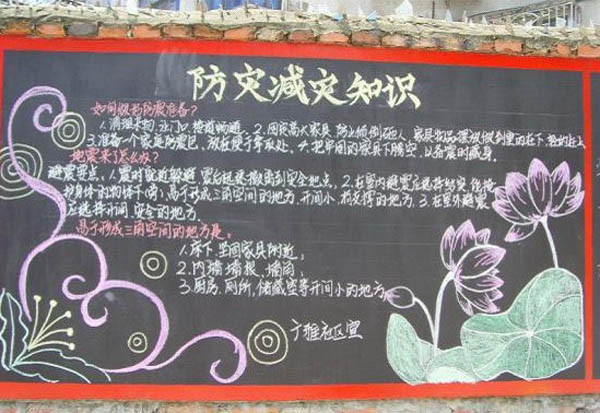 防灾减灾知识
如何做好防震准备?
1.清理杂物,让门口、楼道畅通。2.固定高大家具,防止倾倒砸人,家具物品摆放做到重的在下,轻的在上
3.准备一个家庭防震包,放在便于拿取处。4.把牢固的家具下腾空,以备震时藏身。
地震来了怎么办?
避震要点:1.震时就近躲避,震后迅速撤离到安全地点。2.在室内避震应选择结实、能掩
护身体的物体下(旁)、易于形成三角空间的地方,开间小、有支撑的地方。3.在室外避震
应选择开阔、安全的地方。
易于形成三角空间的地方是。
1.床下、坚固家具附近;
2.内墙墙根、墙角;
3.厨房、厕所、储藏室等开间小的地方
广雅社区宣